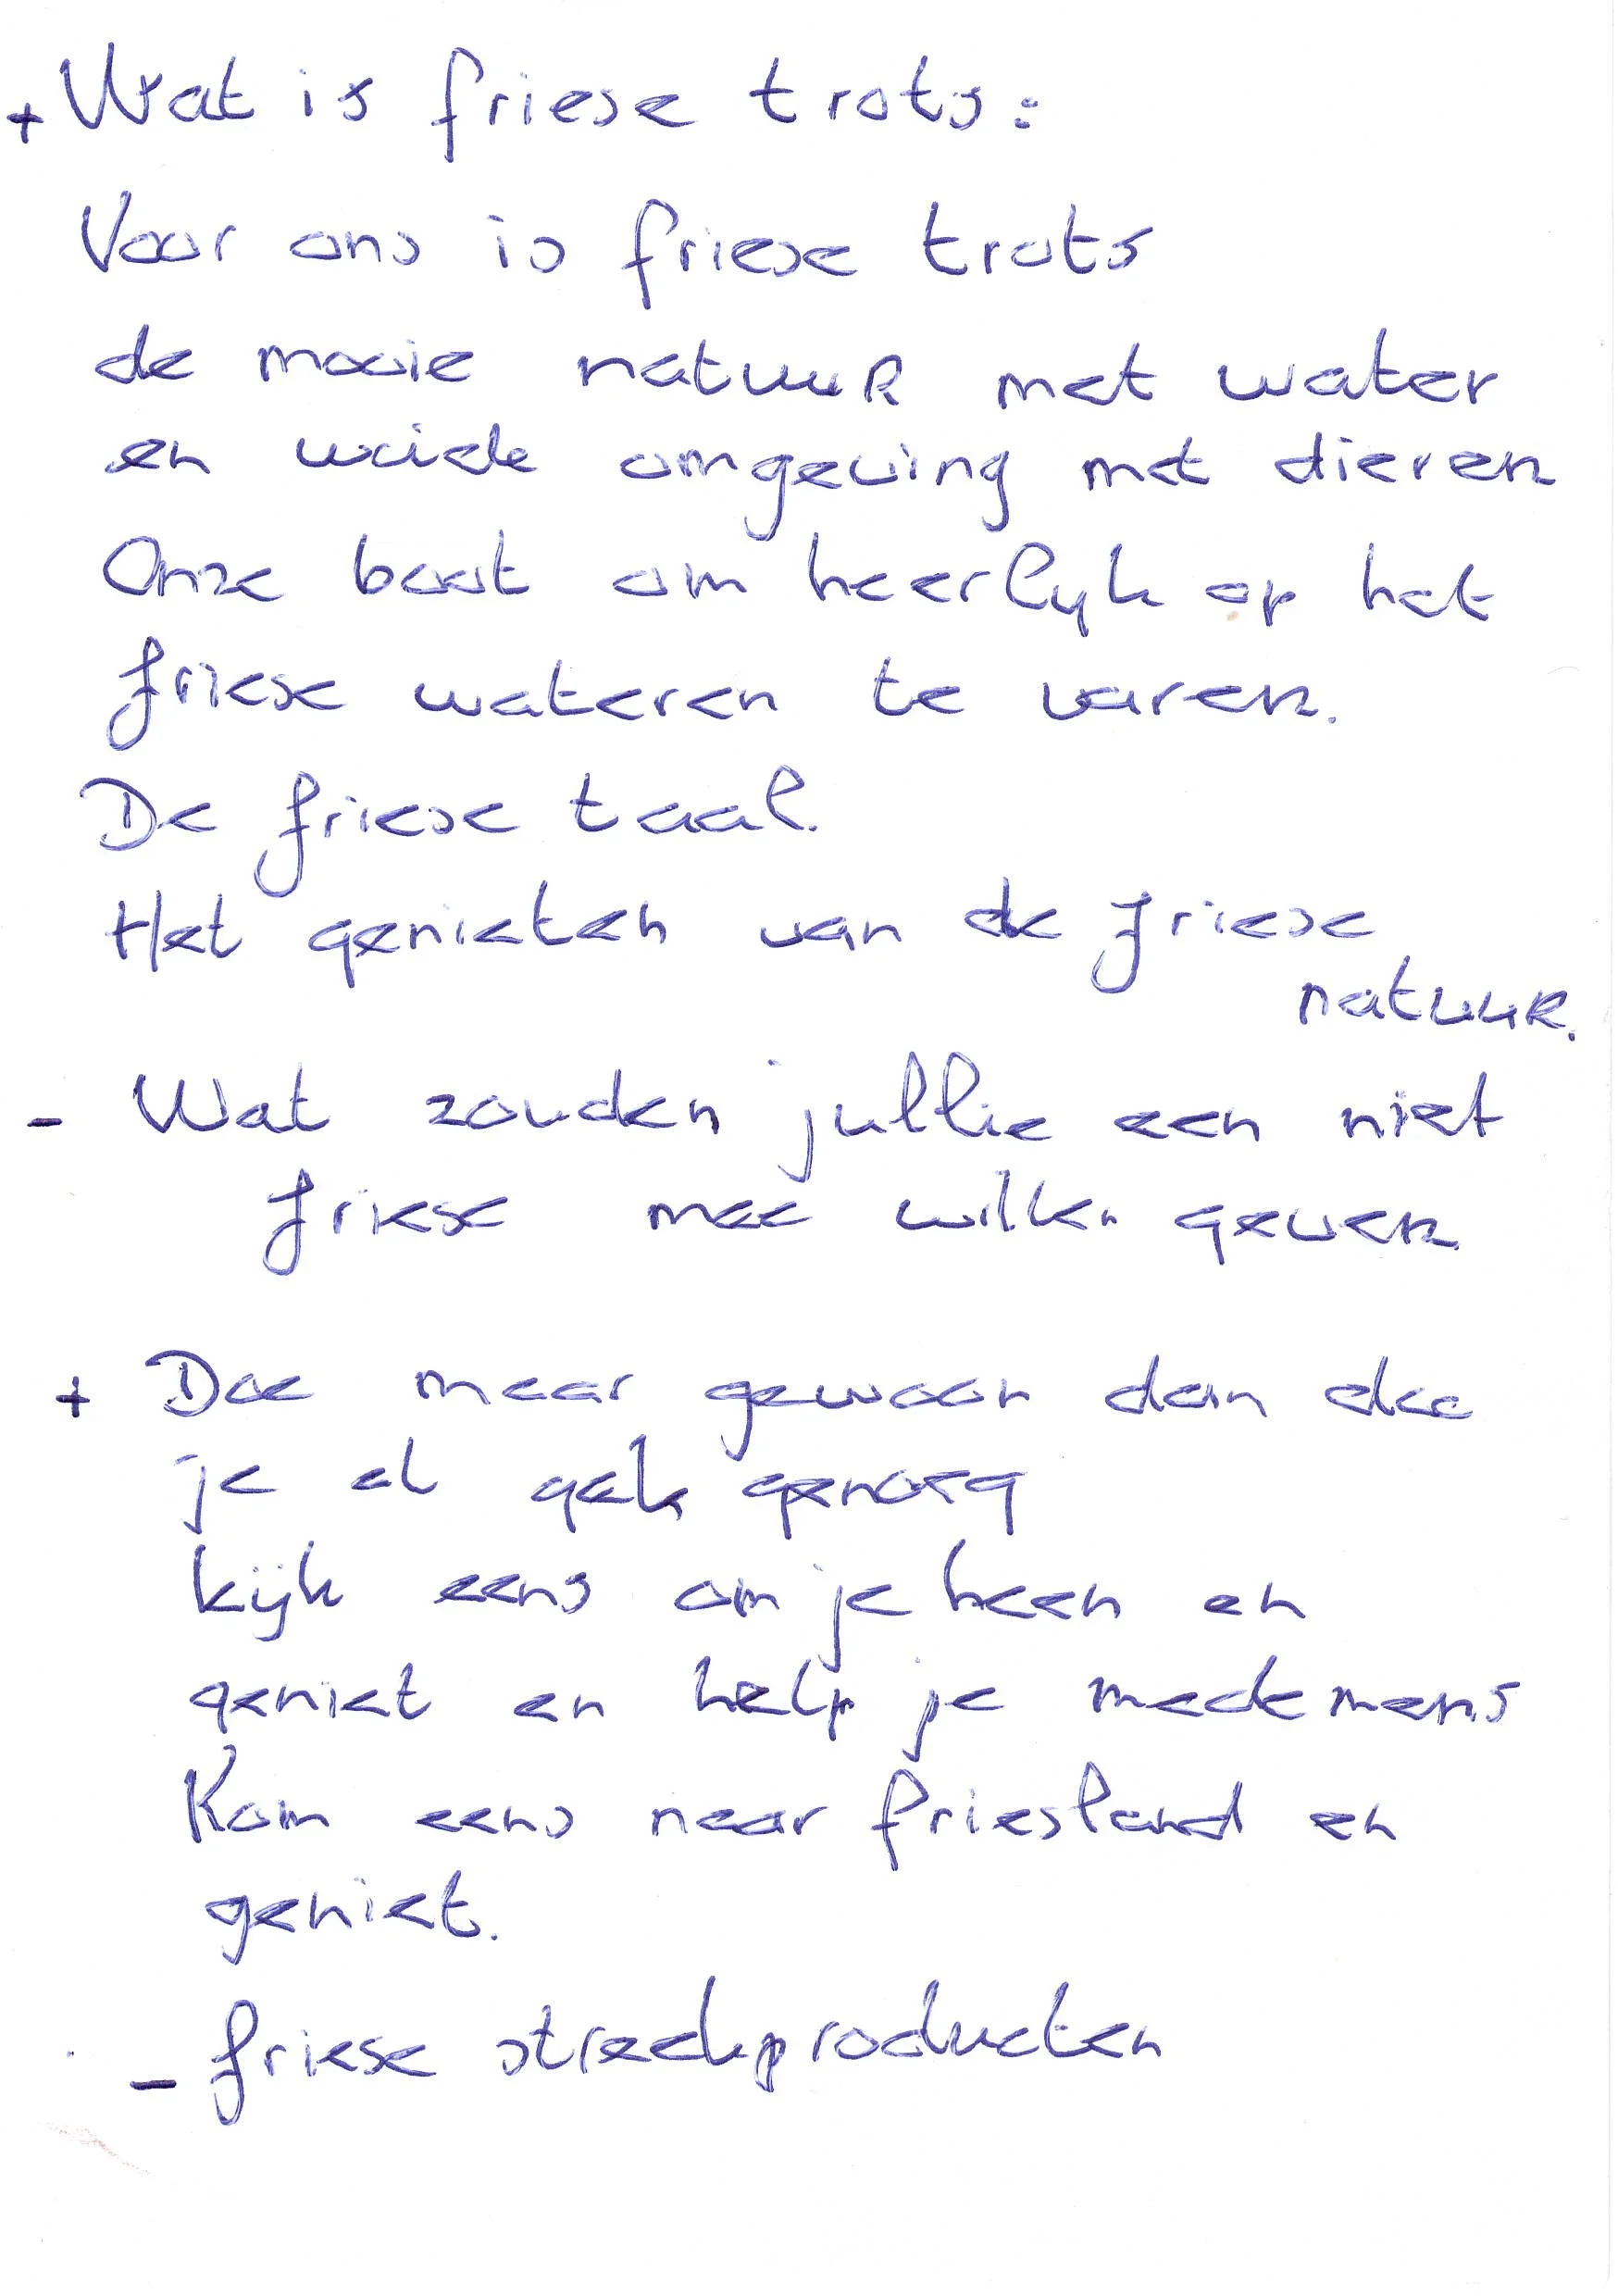 + Wat is friese trots:
Voor ons is friese trots
de mooie natuur met water
en weide omgeving met dieren
Onze boot om heerlyk op het
friese wateren te varen.
De friese taal.
Het genieten van de friese
natuur.
- Wat zouden jullie een niet
friese mee willen geven
+ Doe maar gewoon dan doe
je al gek genoeg
kijk eens om je heen en
geniet en help je medemens
Kom eens naar friesland en
geniet.
- friese streekproducten